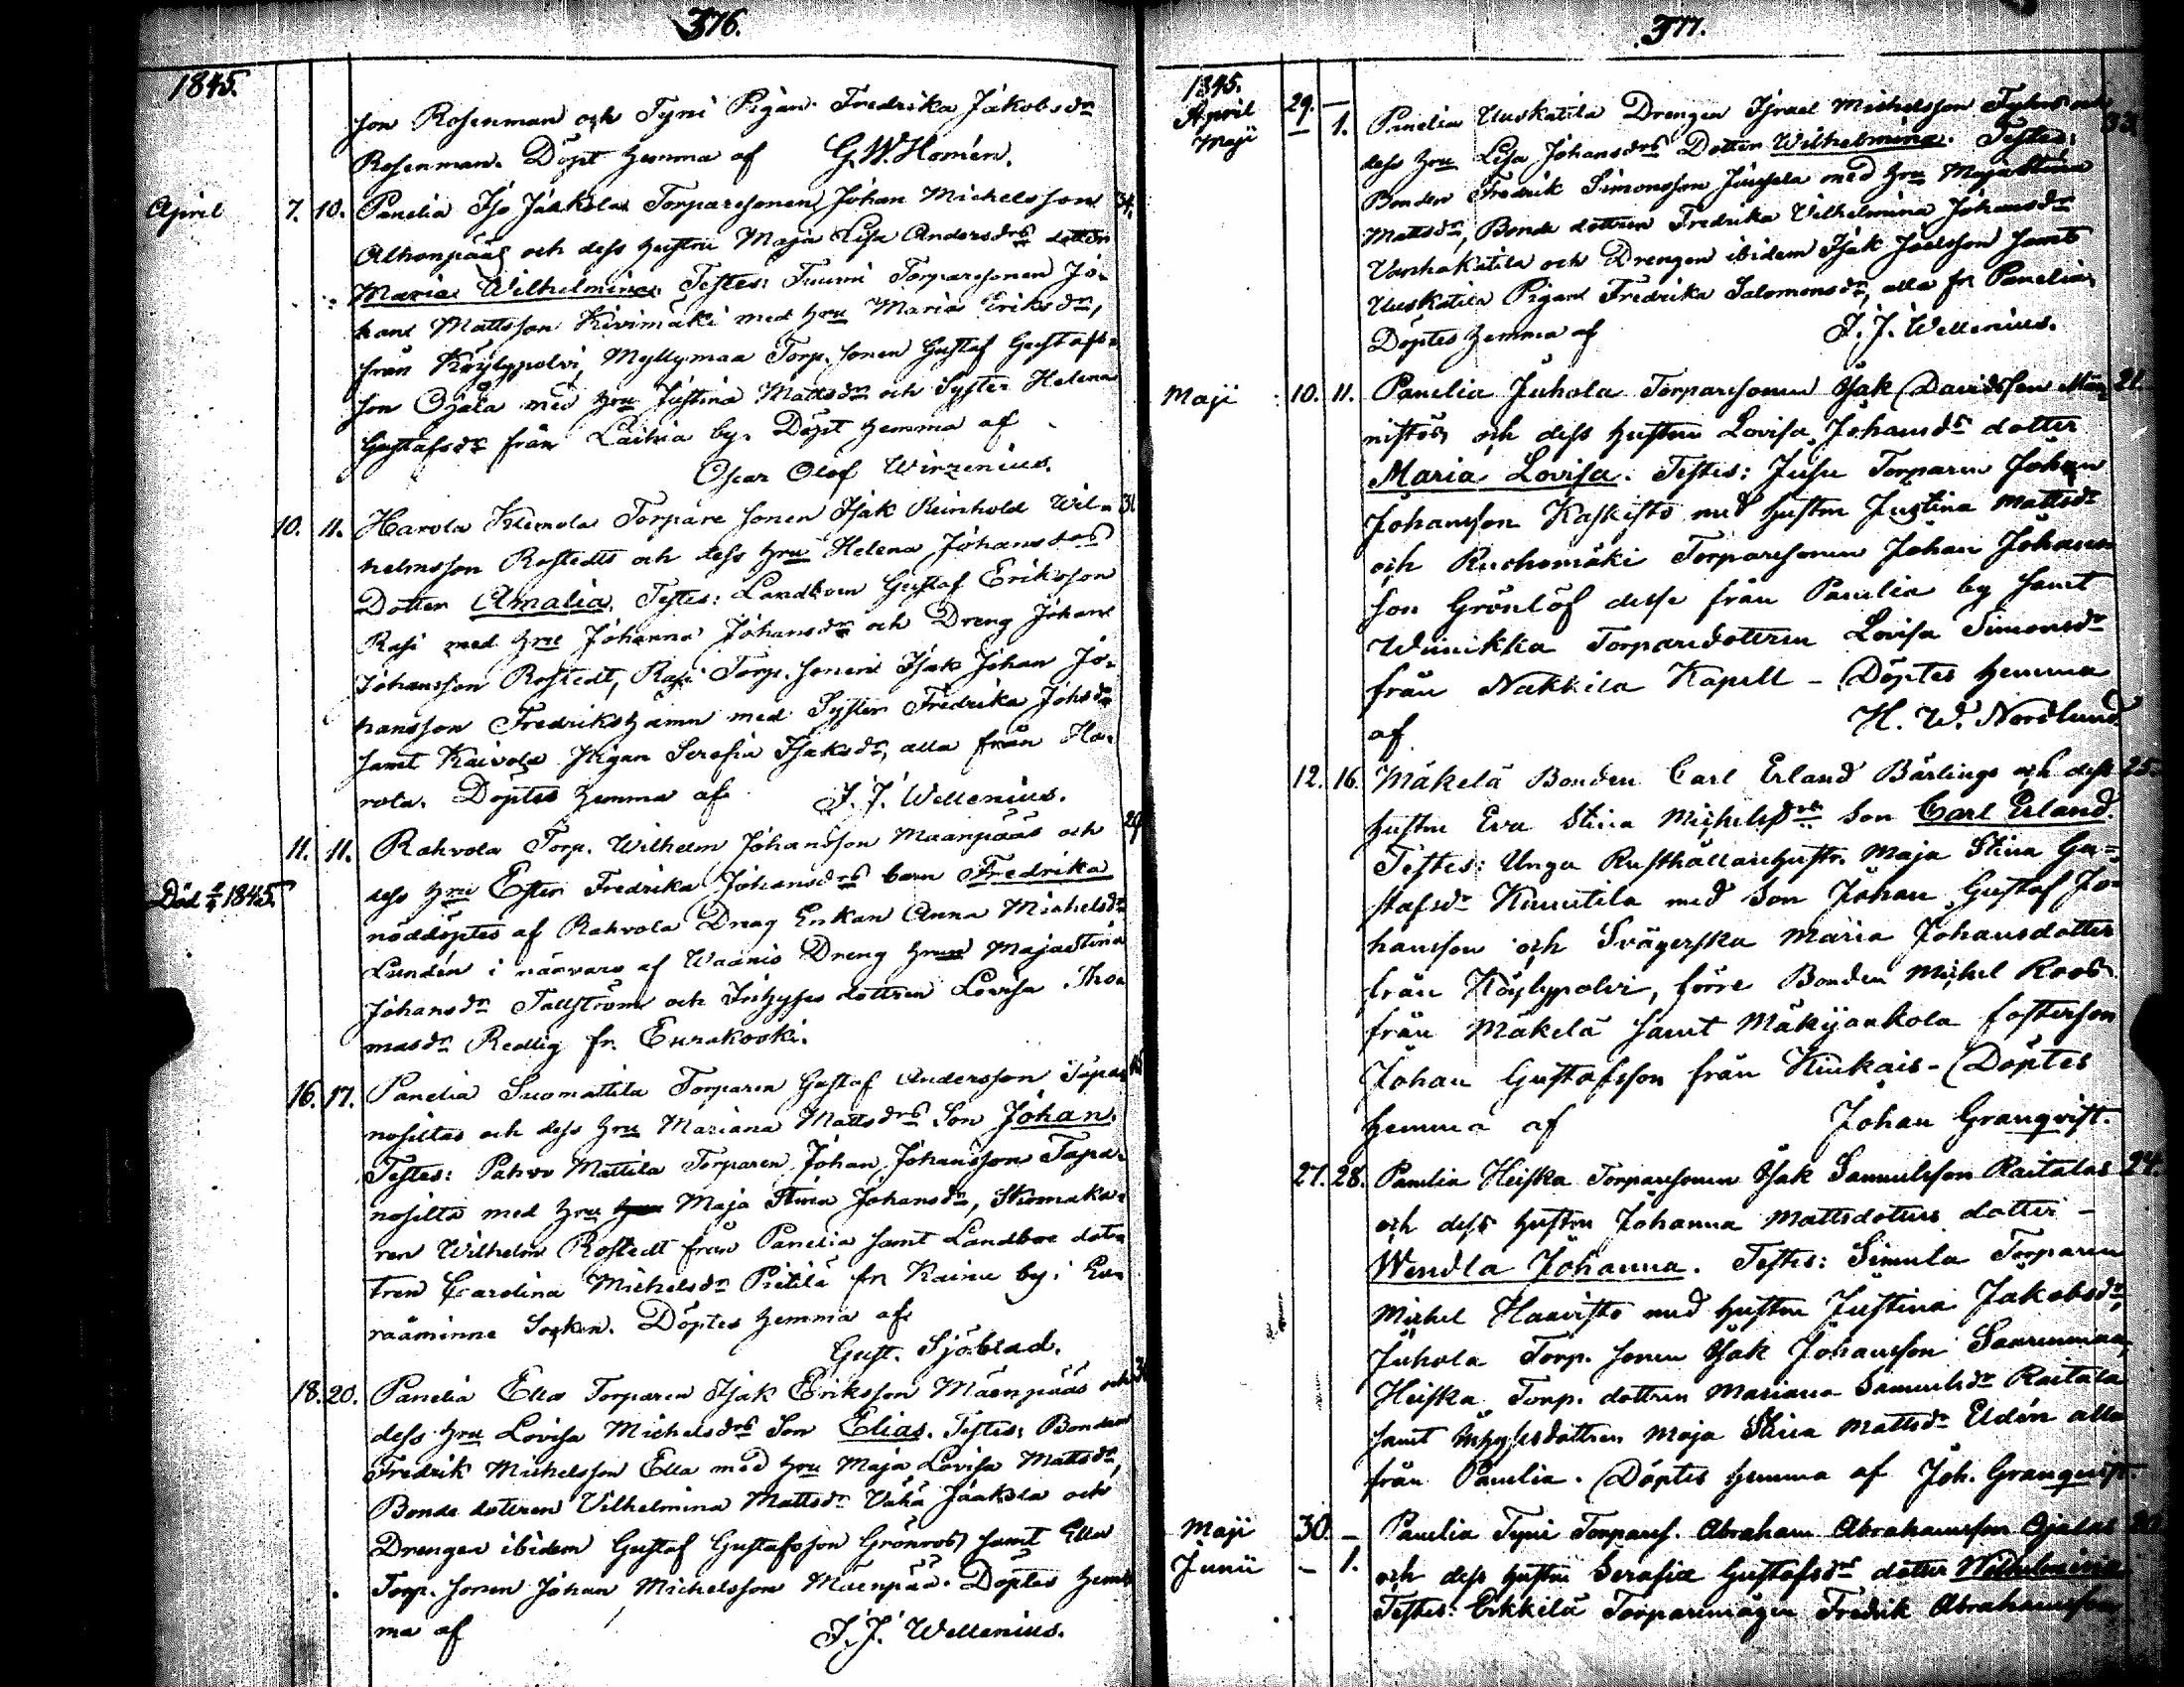 376.
1845.
son Rosenman och Tyni Pigan Fredrika Jakobsdr
Rosenman. Döpt hemma af G. W. Homén.
April 7. 10. Panelia Iso Jaakolas Torparesonen Johan Michelsson 34.
Alhonpääs och dess hustru Maja Lisa Andersdrs dotter
Maria Wilhelmina. Testes: Tuumi Torparesonen Jo-
hans Mattsson Kivimäki med hru Maria Eriksdr,
från Köylypolvi, Myllymaa Torp. sonen Gustaf Gustafs-
son Ojala med hru Justina Mattsdr och Syster Helena
Gustafsdr från Laihia by. Döpt hemma af
Oscar Olof Wirzenius.
10. 11. Harola Klemola Torpare sonen Isak Reinhold Wil- 31
helmsson Rostedts och dess hru Helena Johansdrs
Dotter Amalia. Testes: Landboen Gustaf Eriksson
Rasi med hru Johanna Johansdr och Dreng Johan
Johansson Rostedt, Rasi Torp. sonen Isak Johan Jo-
hansson Fredrikshamn med Syster Fredrika Johsdr
samt Kaivola Pigan Serafia Isaksdr, alla från Ha-
rola. Döptes hemma af J. J. Wellenius.
11. 11. Rahvola Torp. Wilhelm Johansson Maanpääs och 29
dess hru Ester Fredrika Johansdrs barn Fredrika
Död 1845.
nöddöptes af Rahvola Dreng Enkan Anna Michelsdr
Lundén i närvaro af Waanio Dreng hrun Maja Stina
Johansdr Tallström och Inhyses dottren Lovisa Tho-
masdr Redlig fr. Eurakoski.
16. 17. Panelia Suomattila Torparen Gustaf Andersson Tapa-
nosiltas och dess hru Mariana Mattsdrs Son Johan.
Testes: Pahvo Mattila Torparen Johan Johansson Tapa-
nosilta med hru Maja Stina Johansdr, Skomaka-
ren Wilhelm Rostedt från Panelia samt Landboe dot-
tren Carolina Michelsdr Pietilä fr. Kainu by i Eu-
raåminne Socken. Döptes hemma af
Gust. Sjöblad.
18. 20. Panelia Ellas Torparen Isak Eriksson Mäenpääs och
dess hru Lovisa Michelsdrs Son Elias. Testes: Bonden
Fredrik Michelsson Ella med hru Maja Lovisa Mattsdr,
Bonde dottren Vilhelmina Mattsdr Vähä Jaakola och
Drengen ibidem Gustaf Gustafsson Grönroos samt Ella
Torp. sonen Johan Michelsson Mäenpää. Döptes hem-
ma af J. J. Wellenius.
377.
1845.
April 29. —
Maji 1. Panelia Uuskatila Drengen Israel Michelsson och 33
dess hru Lisa Johansdrs Dotter Wilhelmina. Testes:
Bonden Fredrik Simonsson med hru Maja Stina
Mattsdr, Bonde dottren Fredrika Vilhelmina Johansdr
Vanhakatila och Drengen ibidem Isak Joelsson samt
Uuskatila Pigan Fredrika Salomonsdr, alla fr. Panelia
Döptes hemma af J. J. Wellenius.
Maji 10. 11. Panelia Juhola Torparesonen Isak Davidsson Män- 21.
nistös och dess hustru Lovisa Johansdrs dotter
Maria Lovisa. Testes: Jusu Torparen Johan
Johansson Kaskisto med hustru Justina Mattsdr
och Ruohomäki Torparesonen Johan Johans-
son Grönlöf desse från Panelia by samt
Wiinikka Torparedottren Lovisa Simonsdr
från Nakkila Kapell - Döptes hemma
af H. W. Nordlund.
12. 16. Mäkelä Bonden Carl Erland Bärlings och dess 25.
hustru Eva Stina Michelsdrs Son Carl Erland.
Testes: Unga Rusthållarehustr. Maja Stina Gu-
stafsdr Knuutila med Son Johan Gustaf Jo-
hansson och Svägerska Maria Johansdotter
från Köylypolvi, förre Bonden Michel Roos
från Mäkelä samt Mäkijaakola fosterson
Johan Gustafsson från Kiukais - Döptes
hemma af Johan Granqvist.
27. 28. Panelia Heiska Torparesonen Isak Samuelsson Raitalas 24.
och dess hustru Johanna Mattsdotters dotter -
Wendla Johanna. Testes: Simula Torparen
Michel Haavisto med hustru Justina Jakobsdr,
Juhola Torp. sonen Isak Johansson Saarenmaa,
Heiska Torp. dottren Mariana Samuelsdr Raitala
samt Inhysesdottren Maja Stina Mattsdr Eldén alla
från Panelia. Döptes hemma af Joh. Granqvist.
Maji 30. — Panelia Tyni Torpares. Abraham Abrahamsson Ojalas
Junii — 1. och dess hustru Serafia Gustafsdrs dotter Wilhelmina
Testes: Erkkilä Torparemågen Fredrik Abrahamsson